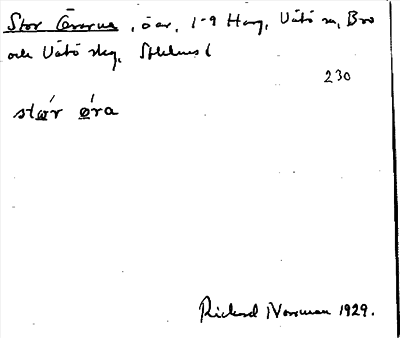 Stor Örarna, öar, 1-9 Harg, Vätö sn, Bro
och Vätö skg, Sthlms l
230
stώ̱r ǿ̱ra
Rickard Norrman 1929.